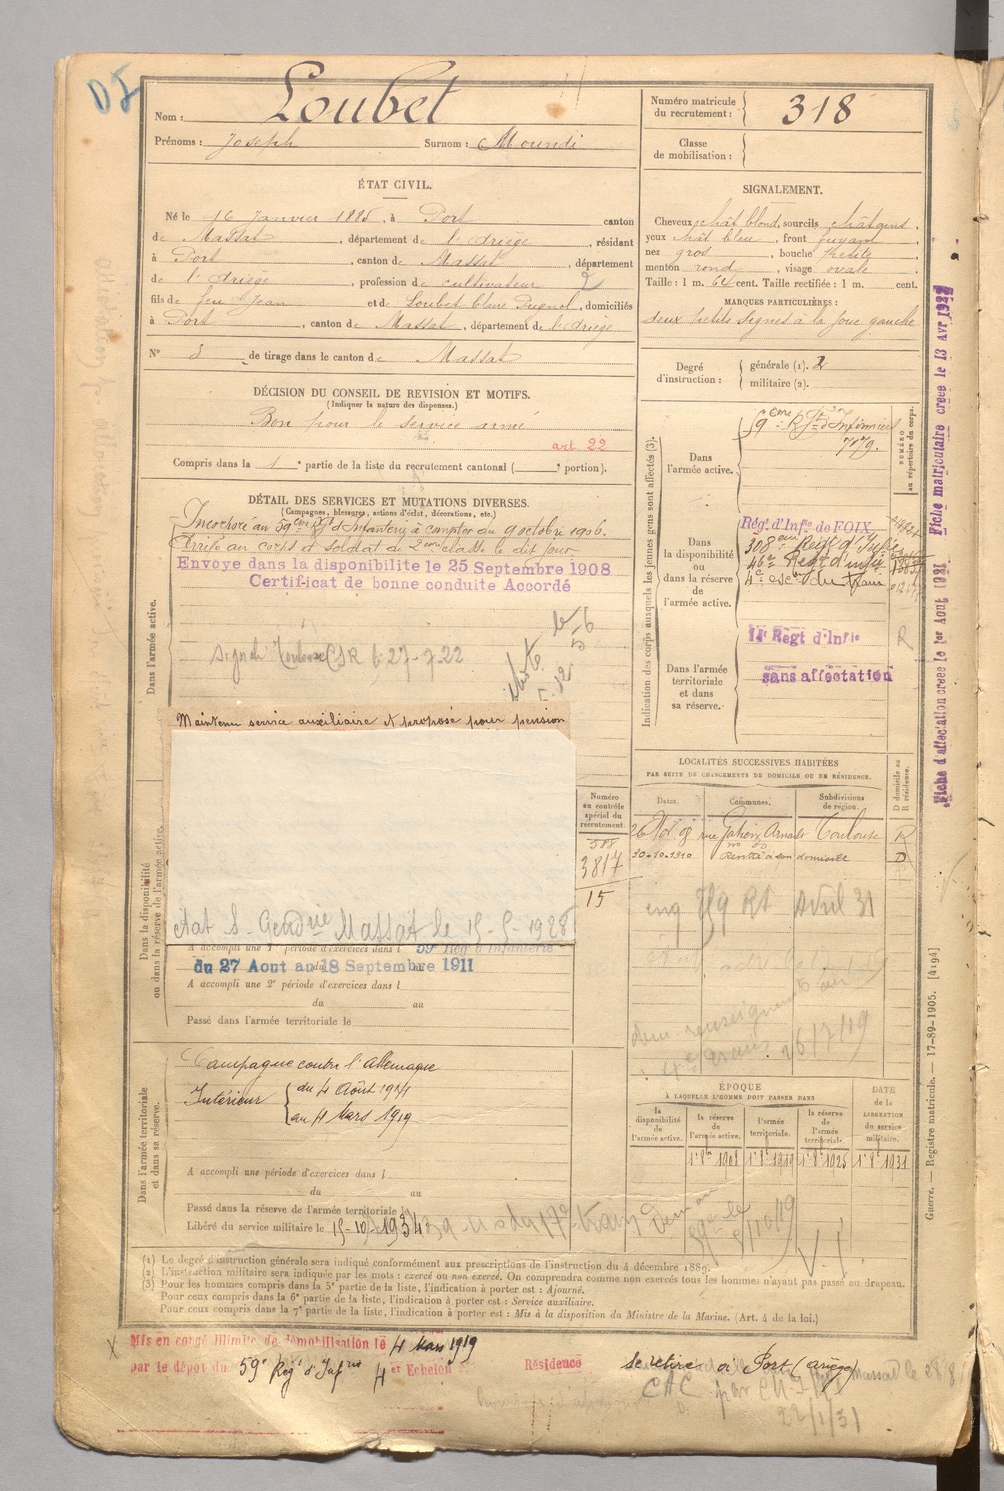 Nom : Loubet
Prénoms : Joseph Surnom : Moundi
Numéro matricule
du recrutement : 318
Classe
de mobilisation :
ÉTAT CIVIL.
Né le 16 Janvier 1885, à Port canton
de Massat, département de l'Ariège, résidant
à Port, canton de Massat, département
de l'Ariège, profession de cultivateur
fils de feu Jean et de Loubet Claire Pugnol, domiciliés
à Port, canton de Massat, département de l'Ariège
N° 8 de tirage dans le canton de Massat
SIGNALEMENT.
Cheveux chât blond, sourcils châtains,
yeux chât bleu, front fuyant,
nez gros, bouche petite,
menton rond, visage ovale
Taille : 1 m. 64 cent. Taille rectifiée : 1 m. cent.
MARQUES PARTICULIÈRES :
deux petits signes à la joue gauche
Degré
d'instruction :
générale (1). 2
militaire (2).
DÉCISION DU CONSEIL DE REVISION ET MOTIFS.
(Indiquer la nature des dispenses.)
Bon pour le service armé
art. 22
Compris dans la 1e partie de la liste du recrutement cantonal ( e portion).
DÉTAIL DES SERVICES ET MUTATIONS DIVERSES.
(Campagnes, blessures, actions d'éclat, décorations, etc.)
Incorporé au 59ème Rgt d'Infanterie à compter du 9 octobre 1906.
Arrivé au corps et soldat de 2ème classe le dit jour
Envoyé dans la disponibilite le 25 Septembre 1908
Certificat de bonne conduite Accordé
Dans l'armée active.
Toulouse CSR 27-7-22
Maintenu service auxiliaire et proposé pour pension
Massat le 15-5-1928
Dans la disponibilité
ou dans la réserve de l'armée active.
A accompli une 1e période d'exercices dans l 59e Rég d'Infanterie
du 27 Aout au 18 Septembre 1911
A accompli une 2e période d'exercices dans l
du au
Passé dans l'armée territoriale le
Dans l'armée territoriale
et dans sa réserve.
Campagne contre l'Allemagne
Intérieur du 4 Août 1914
au 4 Mars 1919
A accompli une période d'exercices dans l
du au
Passé dans la réserve de l'armée territoriale le
Libéré du service militaire le 15-10-1934
Indication des corps auxquels les jeunes gens sont affectés (3).
Dans
l'armée active.
59ème Rgt d'Infanterie
7179.
NUMÉRO
au répertoire du corps.
Dans
la disponibilité
ou
dans la réserve
de
l'armée active.
Régt d'Infie de FOIX
308 eme Régt d'Infie
46e Régt d'infie
4e esc on du train
Dans l'armée
territoriale
et dans
sa réserve.
14e Régt d'Infie
sans affectation
R
LOCALITÉS SUCCESSIVES HABITÉES
PAR SUITE DE CHANGEMENTS DE DOMICILE OU DE RÉSIDENCE.
Numéro
au contrôle
spécial du
recrutement.
588
3817
15
Dates. Communes. Subdivisions
de région. D domicile ou
R résidence.
26 Nov 08 rue Gatien Arnoult Toulouse R
30-10-1910 Rentré à son domicile D
Avril 31
26/7/19
ÉPOQUE
À LAQUELLE L'HOMME DOIT PASSER DANS
la
disponibilité
de
l'armée active.
la réserve
de
l'armée active.
l'armée
territoriale.
la réserve
de
l'armée
territoriale.
DATE
de la
LIBÉRATION
du service
militaire.
1er 8bre 1908 1er 8 1919 1er 8 1925 1er 8 1931
(1) Le degré d'instruction générale sera indiqué conformément aux prescriptions de l'instruction du 4 décembre 1889.
(2) L'instruction militaire sera indiquée par les mots : exercé ou non exercé. On comprendra comme non exercés tous les hommes n'ayant pas passé au drapeau.
(3) Pour les hommes compris dans la 5e partie de la liste, l'indication à porter est : Ajourné.
Pour ceux compris dans la 6e partie de la liste, l'indication à porter est : Service auxiliaire.
Pour ceux compris dans la 7e partie de la liste, l'indication à porter est : Mis à la disposition du Ministre de la Marine. (Art. 4 de la loi.)
Mis en congé illimité de démobilisation le 4 Mars 1919
par le dépôt du 59e Régt d'Infrie 4 et Echelon Résidence se retire à Port (Ariège)
CAC
22/1/31
Guerre. — Registre matricule. — 17-89-1905. [4194]
Fiche d'affectation creee le 1er Aout 1921 Fiche matriculaire creee le 13 Avr 1922